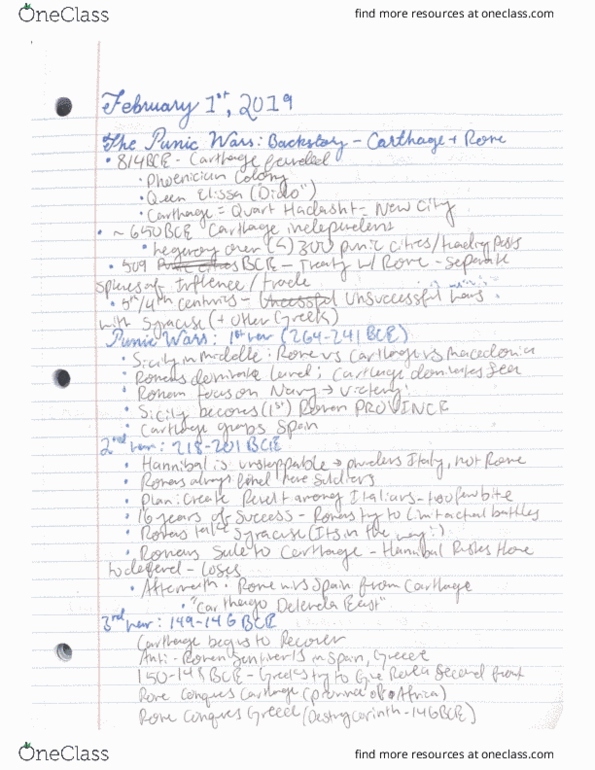 OneClass
find more resources at oneclass.com
February 1st, 2019
The Punic Wars: Backstory - Carthage + Rome
• 814 BCE - Carthage founded
• Phoenician Colony
• Queen Elissa ("Dido")
• Carthage = Quart Hadasht - New City
• ~ 650 BCE Carthage independent
• hegemony over (≤) 300 punic cities/trading posts
• 509 BCE - Treaty w/ Rome - Separate
spheres of Influence / trade
• 5th/4th centuries - Unsuccessful wars
with Syracuse (+ other Greeks)
Punic Wars: 1st war (264-241 BCE)
• Sicily in middle: Rome vs Carthage vs Macedonia
• Romans dominate land; Carthage dominates Sea
• Roman focus on Navy → victory!
• Sicily becomes (1st) Roman PROVINCE
• Carthage grabs Spain
2nd war: 218-201 BCE
• Hannibal is unstoppable → Italy, not Rome
• Romans always have soldiers
• Plan: Create Revolt among Italians - too few bite
• 16 years of Success - Romans try to limit actual battles
• Romans take Syracuse (Its in the way!)
• Romans Sail to Carthage - Hannibal Rushes Home
to defend - loses
• Aftermath • Rome wins Spain from Carthage
• "Carthago Delenda East"
3rd war: 149-146 BCE
Carthage begins to Recover
Anti-Roman Sentiments in Spain, Greece
150-148 BCE - Greeks try to Second front
Rome Conquers Carthage (province of Africa)
Rome Conquers Greece (Destroy Corinth - 146 BCE)
OneClass
find more resources at oneclass.com